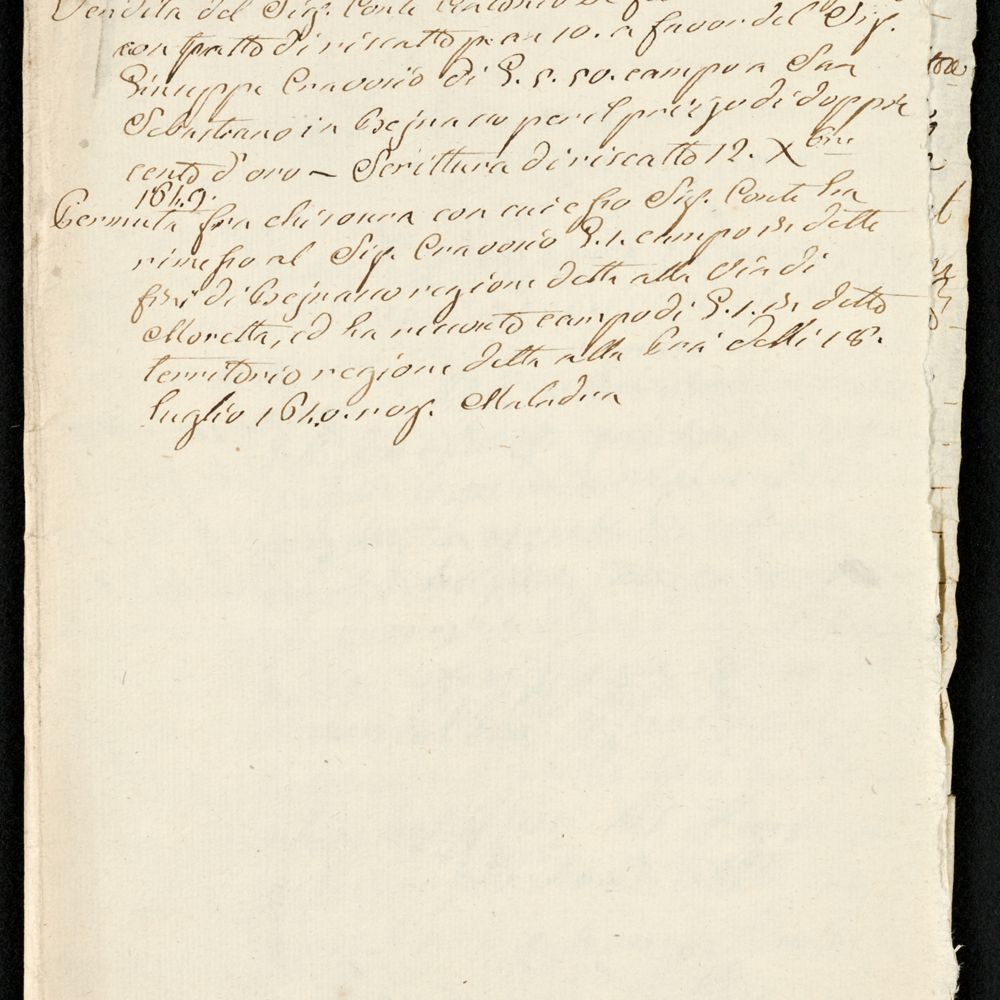 Vendita del Sig. Conte
con patto di riscatto p. an 10. a favor del Sig.
Giuseppe Cravosio di G. 5. 50. campo a San
Sebastiano in Beinasco per il prezzo di doppie
cento d'oro – Scrittura di riscatto 12. Xbre
1649.
Permuta fra chi sovra con cui esso Sig. Conte ha
rimesso al Sig. Cravosio G. 1. campo delle
fini di Beinasco regione detta alla Via di
Moretta, ed ha ricevuto campo di G. 1. detto
territorio regione detta alla delli 18.
luglio 1640. rog. Maladra